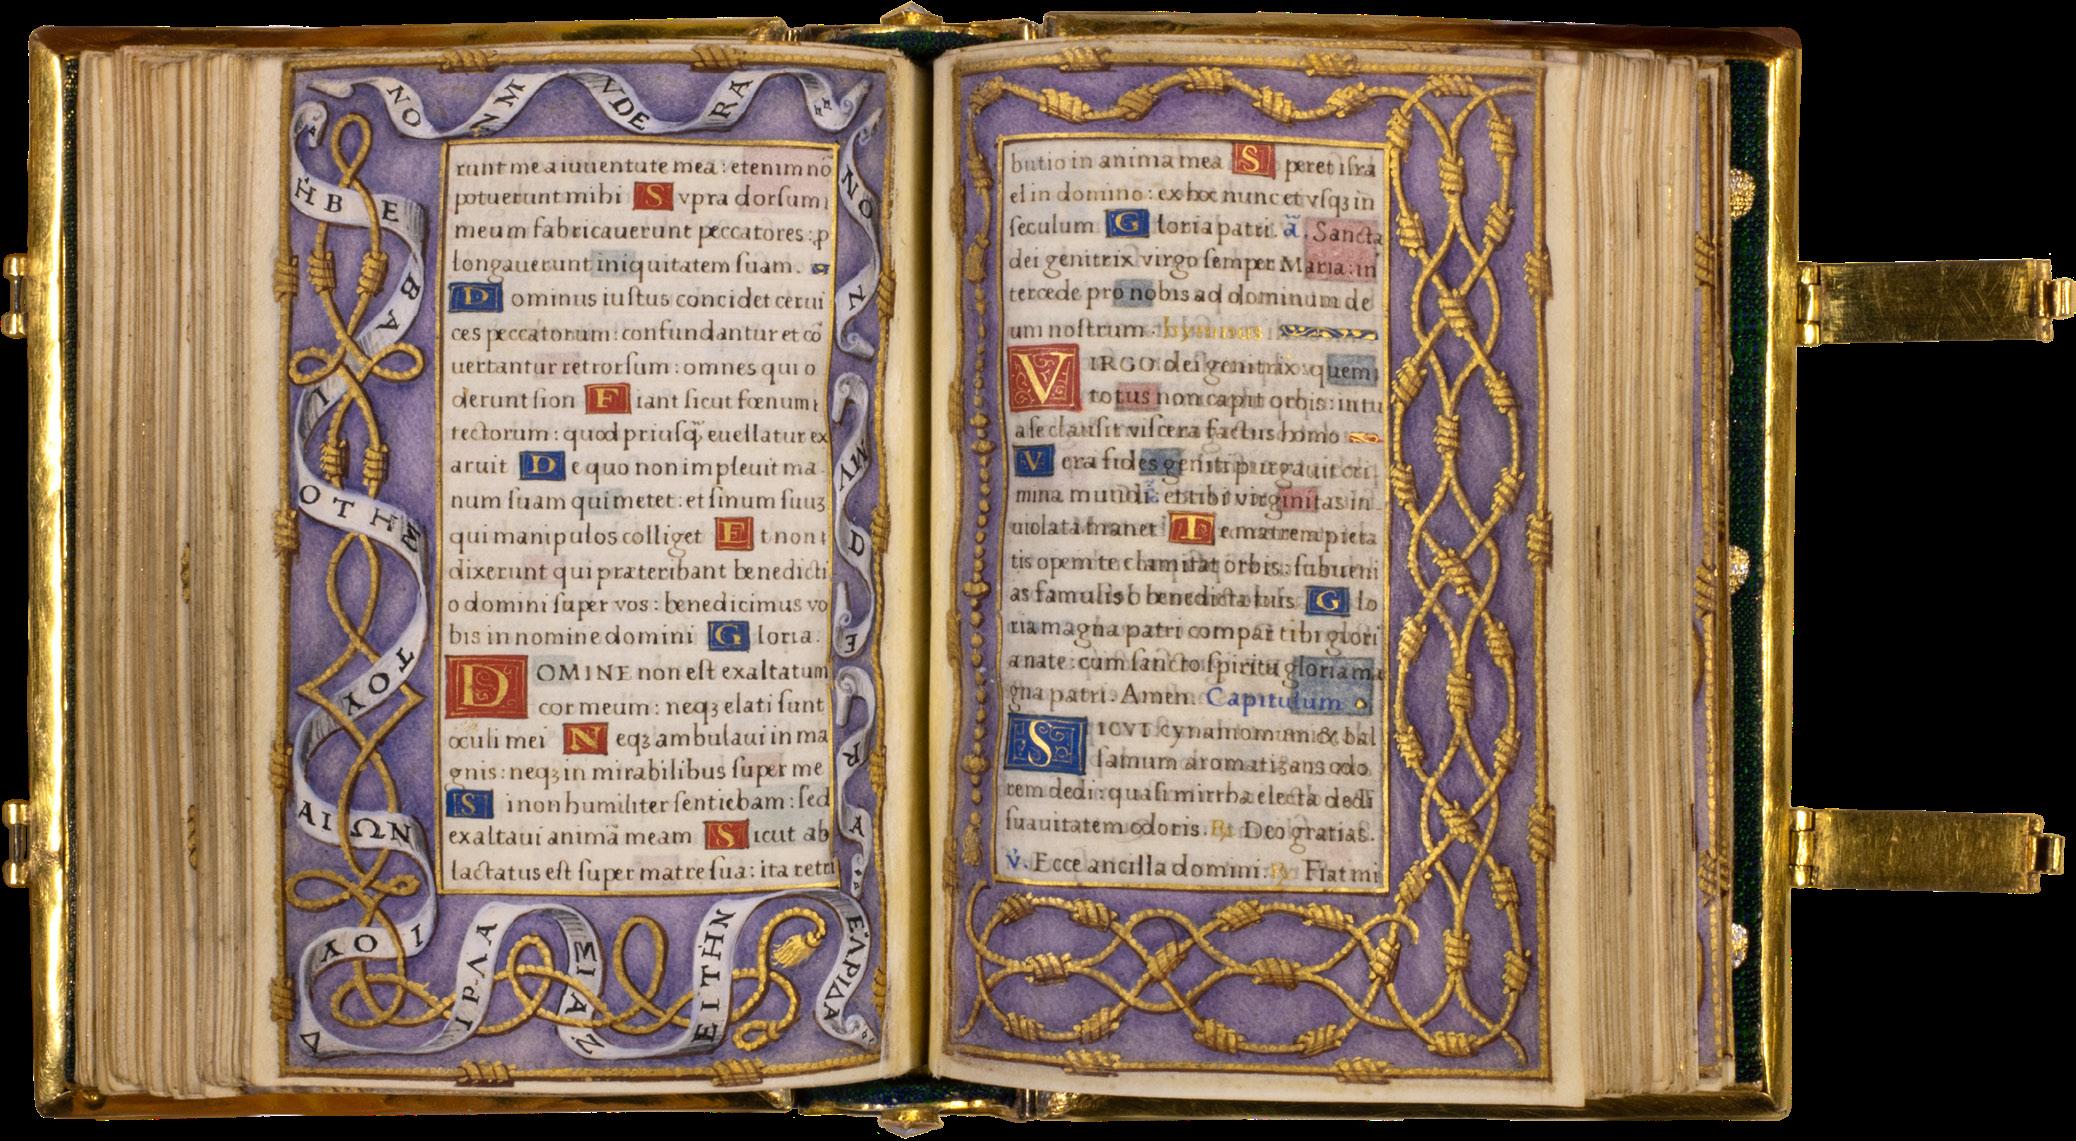 NO NM VDE RA
NO N MVD E RA
ΗΒ Ε ΒΑ
ΟΤΗΣ ΤΟΥ ΑΙΩΝ
runt me a iuuentute mea : etenim nō
potuerunt mihi S vpra dorſum
meum fabricauerunt peccatores : p
longauerunt iniquitatem ſuam.
D ominus iuſtus concidet cerui
ces peccatorum : confundantur et cō
uertantur retrorſum : omnes qui o
derunt ſion F iant ſicut fœnum
tectorum : quod priuſq̃ euellatur ex
aruit D e quo non impleuit ma
num ſuam qui metet : et ſinum ſuuꝫ
qui manipulos colliget E t non
dixerunt qui præteribant benedicti
o domini ſuper vos : benedicimus vo
bis in nomine domini G loria.
D OMINE non eſt exaltatum
cor meum : neqꝫ elati ſunt
oculi mei N eqꝫ ambulaui in ma
gnis : neqꝫ in mirabilibus ſuper me
S i non humiliter ſentiebam : ſed
exaltaui animā meam S icut ab
lactatus eſt ſuper matre ſua : ita retri
butio in anima mea S peret iſra
el in domino : ex hoc nunc et vſqꝫ in
ſeculum G loria patri. ā. Sancta
dei genitrix virgo ſemper Maria : in
tercede pro nobis ad dominum de
um noſtrum. hymnus
V IRGO dei genitrix quem
totus non capit orbis : in tu
a ſe clauſit viſcera factus homo
V era fides geniti purgauit cri
mina mundi : et tibi virginitas in
uiolata manet T e matrem pieta
tis opem te clamitat orbis : ſubueni
as famulis o benedicta tuis G lo
ria magna patri compar tibi glori
a nate : cum ſancto ſpiritu gloria ma
gna patri. Amen. Capitulum
S ICVT cynamomum & bal
ſamum aromatiꝫans odo
rem dedi : quaſi mirrha electa dedi
ſuauitatem odoris. ℟ Deo gratias.
V̇. Ecce ancilla domini. ℟ Fiat mi